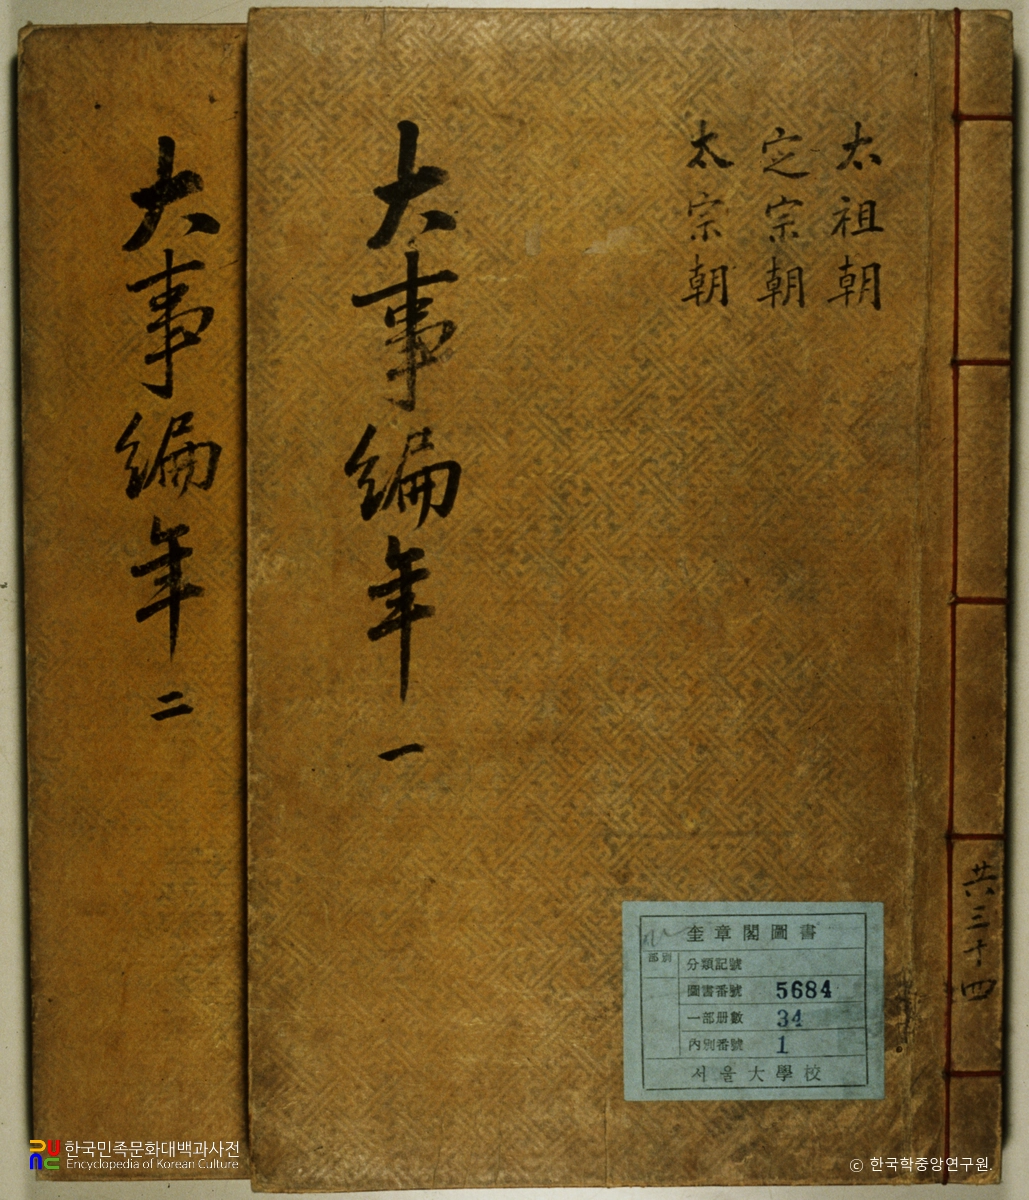 太祖朝
定宗朝
太宗朝
大事編年 一
大事編年 二
共三十四
奎章閣圖書
部別
分類記號
圖書番號 5684
一部册數 34
內別番號 1
서울大學校
한국민족문화대백과사전
Encyclopedia of Korean Culture
© 한국학중앙연구원.